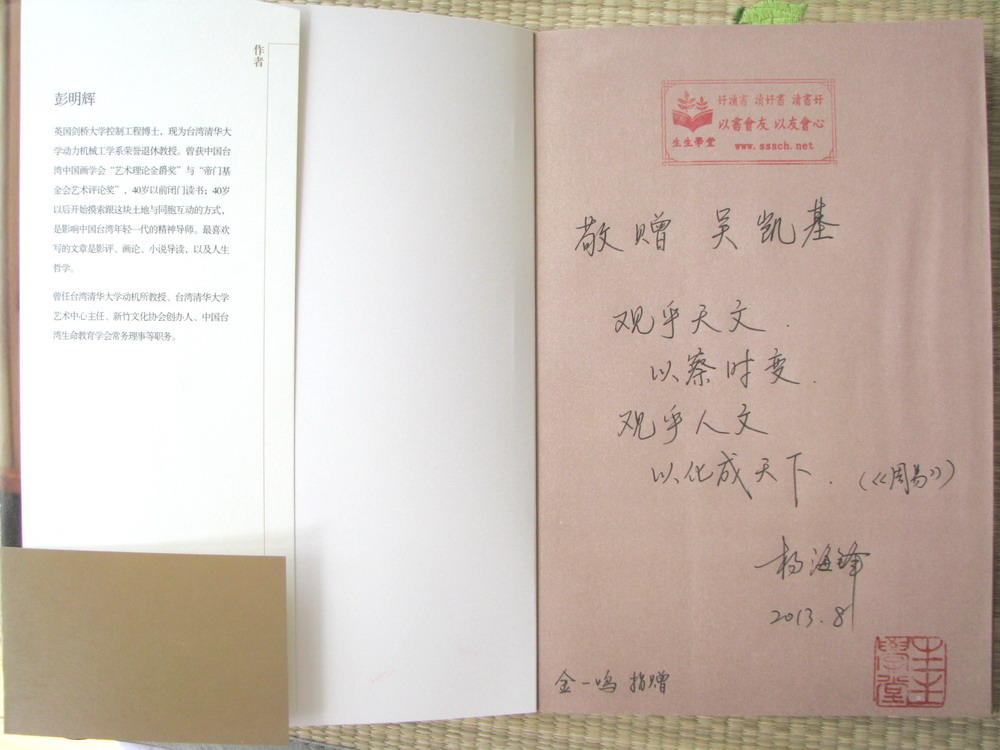 作者
彭明辉
英国剑桥大学控制工程博士，现为台湾清华大
学动力机械工学系荣誉退休教授。曾获中国台
湾中国画学会“艺术理论金爵奖”与“帝门基
金会艺术评论奖”，40岁以前闭门读书；40岁
以后开始摸索跟这块土地与同胞互动的方式，
是影响中国台湾年轻一代的精神导师。最喜欢
写的文章是影评、画论、小说导读，以及人生
哲学。
曾任台湾清华大学动机所教授、台湾清华大学
艺术中心主任、新竹文化协会创办人、中国台
湾生命教育学会常务理事等职务。
好讀書 讀好書 讀書好
以書會友 以友會心
生生學堂 www.sssch.net
敬赠 吴凯基
观乎天文.
以察时变.
观乎人文
以化成天下. (《周易》)
杨海锋
2013.8
金一鸣 捐赠
生生學堂